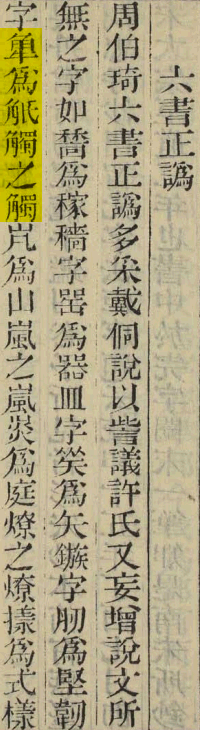 六書正譌
周伯琦六書正譌多采戴侗說以訾議許氏又妄增說文所
無之字如嗇爲稼穡字噐爲器皿字笶爲矢鏃字肕爲堅韌
字単爲觝觸之觸岚爲山嵐之嵐炏爲庭燎之燎㨾爲式樣